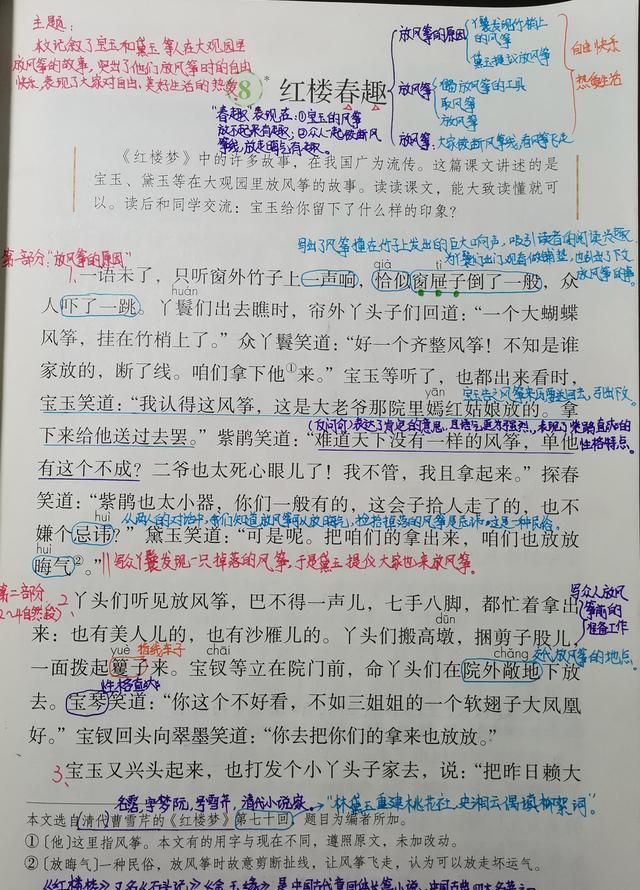 主题:
本文记叙了宝玉和黛玉等人在大观园里
放风筝的故事,突出了他们放风筝时的自由
快乐,表现了大家对自由、美好生活的热爱
放风筝的原因
丫鬟发现竹梢上的风筝
黛玉提议放风筝
放风筝
准备放风筝的工具
取风筝
放风筝
放风筝:大家剪断风筝线,看风筝飞走
自由快乐
热爱生活
8* 红楼春趣
"春趣"表现在:①宝玉的风筝
放不起来有趣;②众人一起剪断风
筝线,放走晦气有趣。
《红楼梦》中的许多故事,在我国广为流传。这篇课文讲述的是
宝玉、黛玉等在大观园里放风筝的故事。读读课文,能大致读懂就可
以。读后和同学交流:宝玉给你留下了什么样的印象?
写出了风筝撞在竹子上发出的巨大响声,吸引读者的阅读兴趣
为丫鬟们出门观看做铺垫,也引出了下文
放风筝的事。
第一部分:"放风筝的原因"
qià tì
1、一语未了,只听窗外竹子上一声响,恰似窗屉子倒了一般,众
huán
人吓了一跳。丫鬟们出去瞧时,帘外丫头子们回道:“一个大蝴蝶
风筝,挂在竹梢上了。”众丫鬟笑道:“好一个齐整风筝!不知是谁
家放的,断了线。咱们拿下他①来。”宝玉等听了,也都出来看时,
yān
宝玉笑道:“我认得这风筝,这是大老爷那院里嫣红姑娘放的。拿
(反问句)表达了肯定的意思,且语气更为强烈,表现了紫鹃直爽的
性格特点。
下来给他送过去罢。”紫鹃笑道:“难道天下没有一样的风筝,单他
有这个不成?二爷也太死心眼儿了!我不管,我且拿起来。”探春
笑道:“紫鹃也太小器,你们一般有的,这会子拾人走了的,也不
huì
嫌个忌讳?”黛玉笑道:“可是呢。把咱们的拿出来,咱们也放放
huì
晦气②。”
写众丫鬟发现一只掉落的风筝,于是黛玉提议大家也来放风筝。
第二部分
(2~4自然段)
2、丫头们听见放风筝,巴不得一声儿,七手八脚,都忙着拿出
写众人放风筝前的准备工作
dūn
来:也有美人儿的,也有沙雁儿的。丫头们搬高墩,捆剪子股儿,
yuè 指线车子 chāi chǎng 交代放风筝的地点。
一面拨起籰子来。宝钗等立在院门前,命丫头们在院外敞地下放
性格直爽
去。宝琴笑道:“你这个不好看,不如三姐姐的一个软翅子大凤凰
好。”宝钗回头向翠墨笑道:“你去把你们的拿来也放放。”
3、宝玉又兴头起来,也打发个小丫头子家去,说:“把昨日赖大
名霑,字梦阮,号雪芹,清代小说家。
"林黛玉重建桃花社,史湘云偶填柳絮词"。
本文选自清代曹雪芹的《红楼梦》第七十回,题目为编者所加。
①〔他〕这里指风筝。本文有的用字与现在不同,遵照原文,未加改动。
②〔放晦气〕一种民俗,放风筝时故意剪断扯线,让风筝飞走,认为可以放走坏运气。